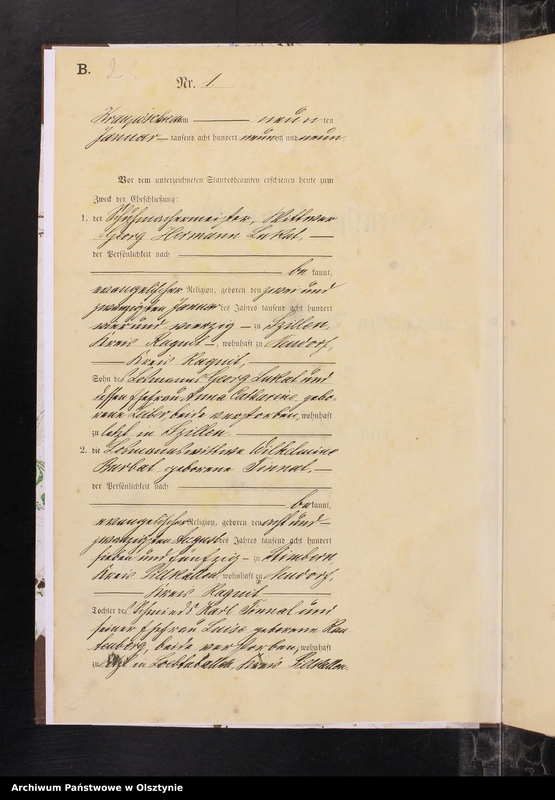 B. 2
Nr. 1.
Kraupischken am neun ten
Januar tausend acht hundert neunzig und neun.
Vor dem unterzeichneten Standesbeamten erschienen heute zum
Zweck der Eheschließung:
1. der Schuhmachermeister, Wittwer
Georg Hermann Lukat,
der Persönlichkeit nach
be kannt,
evangelischer Religion, geboren den zwei und
zwanzigsten Januar des Jahres tausend acht hundert
vier und vierzig zu Szillen,
Kreis Ragnit, wohnhaft zu Neudorf,
Kreis Ragnit,
Sohn des Georg Lukat und
dessen Ehefrau Anna Catharine, gebo-
rene beide verstorben, wohnhaft
zu letzt in Szillen.
2. die Wilhelmine
Burbat geborene Tinnat,
der Persönlichkeit nach
be kannt,
evangelischer Religion, geboren den acht und
zwanzigsten August des Jahres tausend acht hundert
sieben und fünfzig zu
Kreis Pillkallen, wohnhaft zu Neudorf,
Kreis Ragnit
Tochter des Schmieds Karl Tinnat und
seiner Ehefrau Luise geborene Rau-
tenberg, beide verstorben, wohnhaft
zu letzt in Kreis Pillkallen.
Archiwum Państwowe w Olsztynie